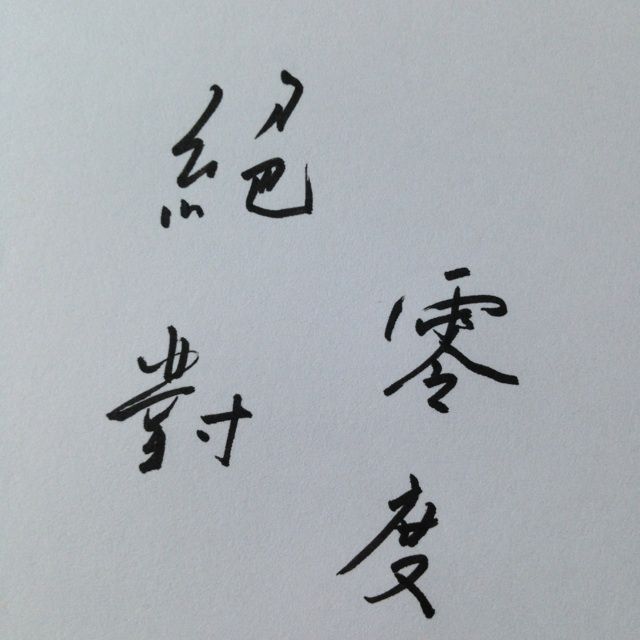 絕對
零度